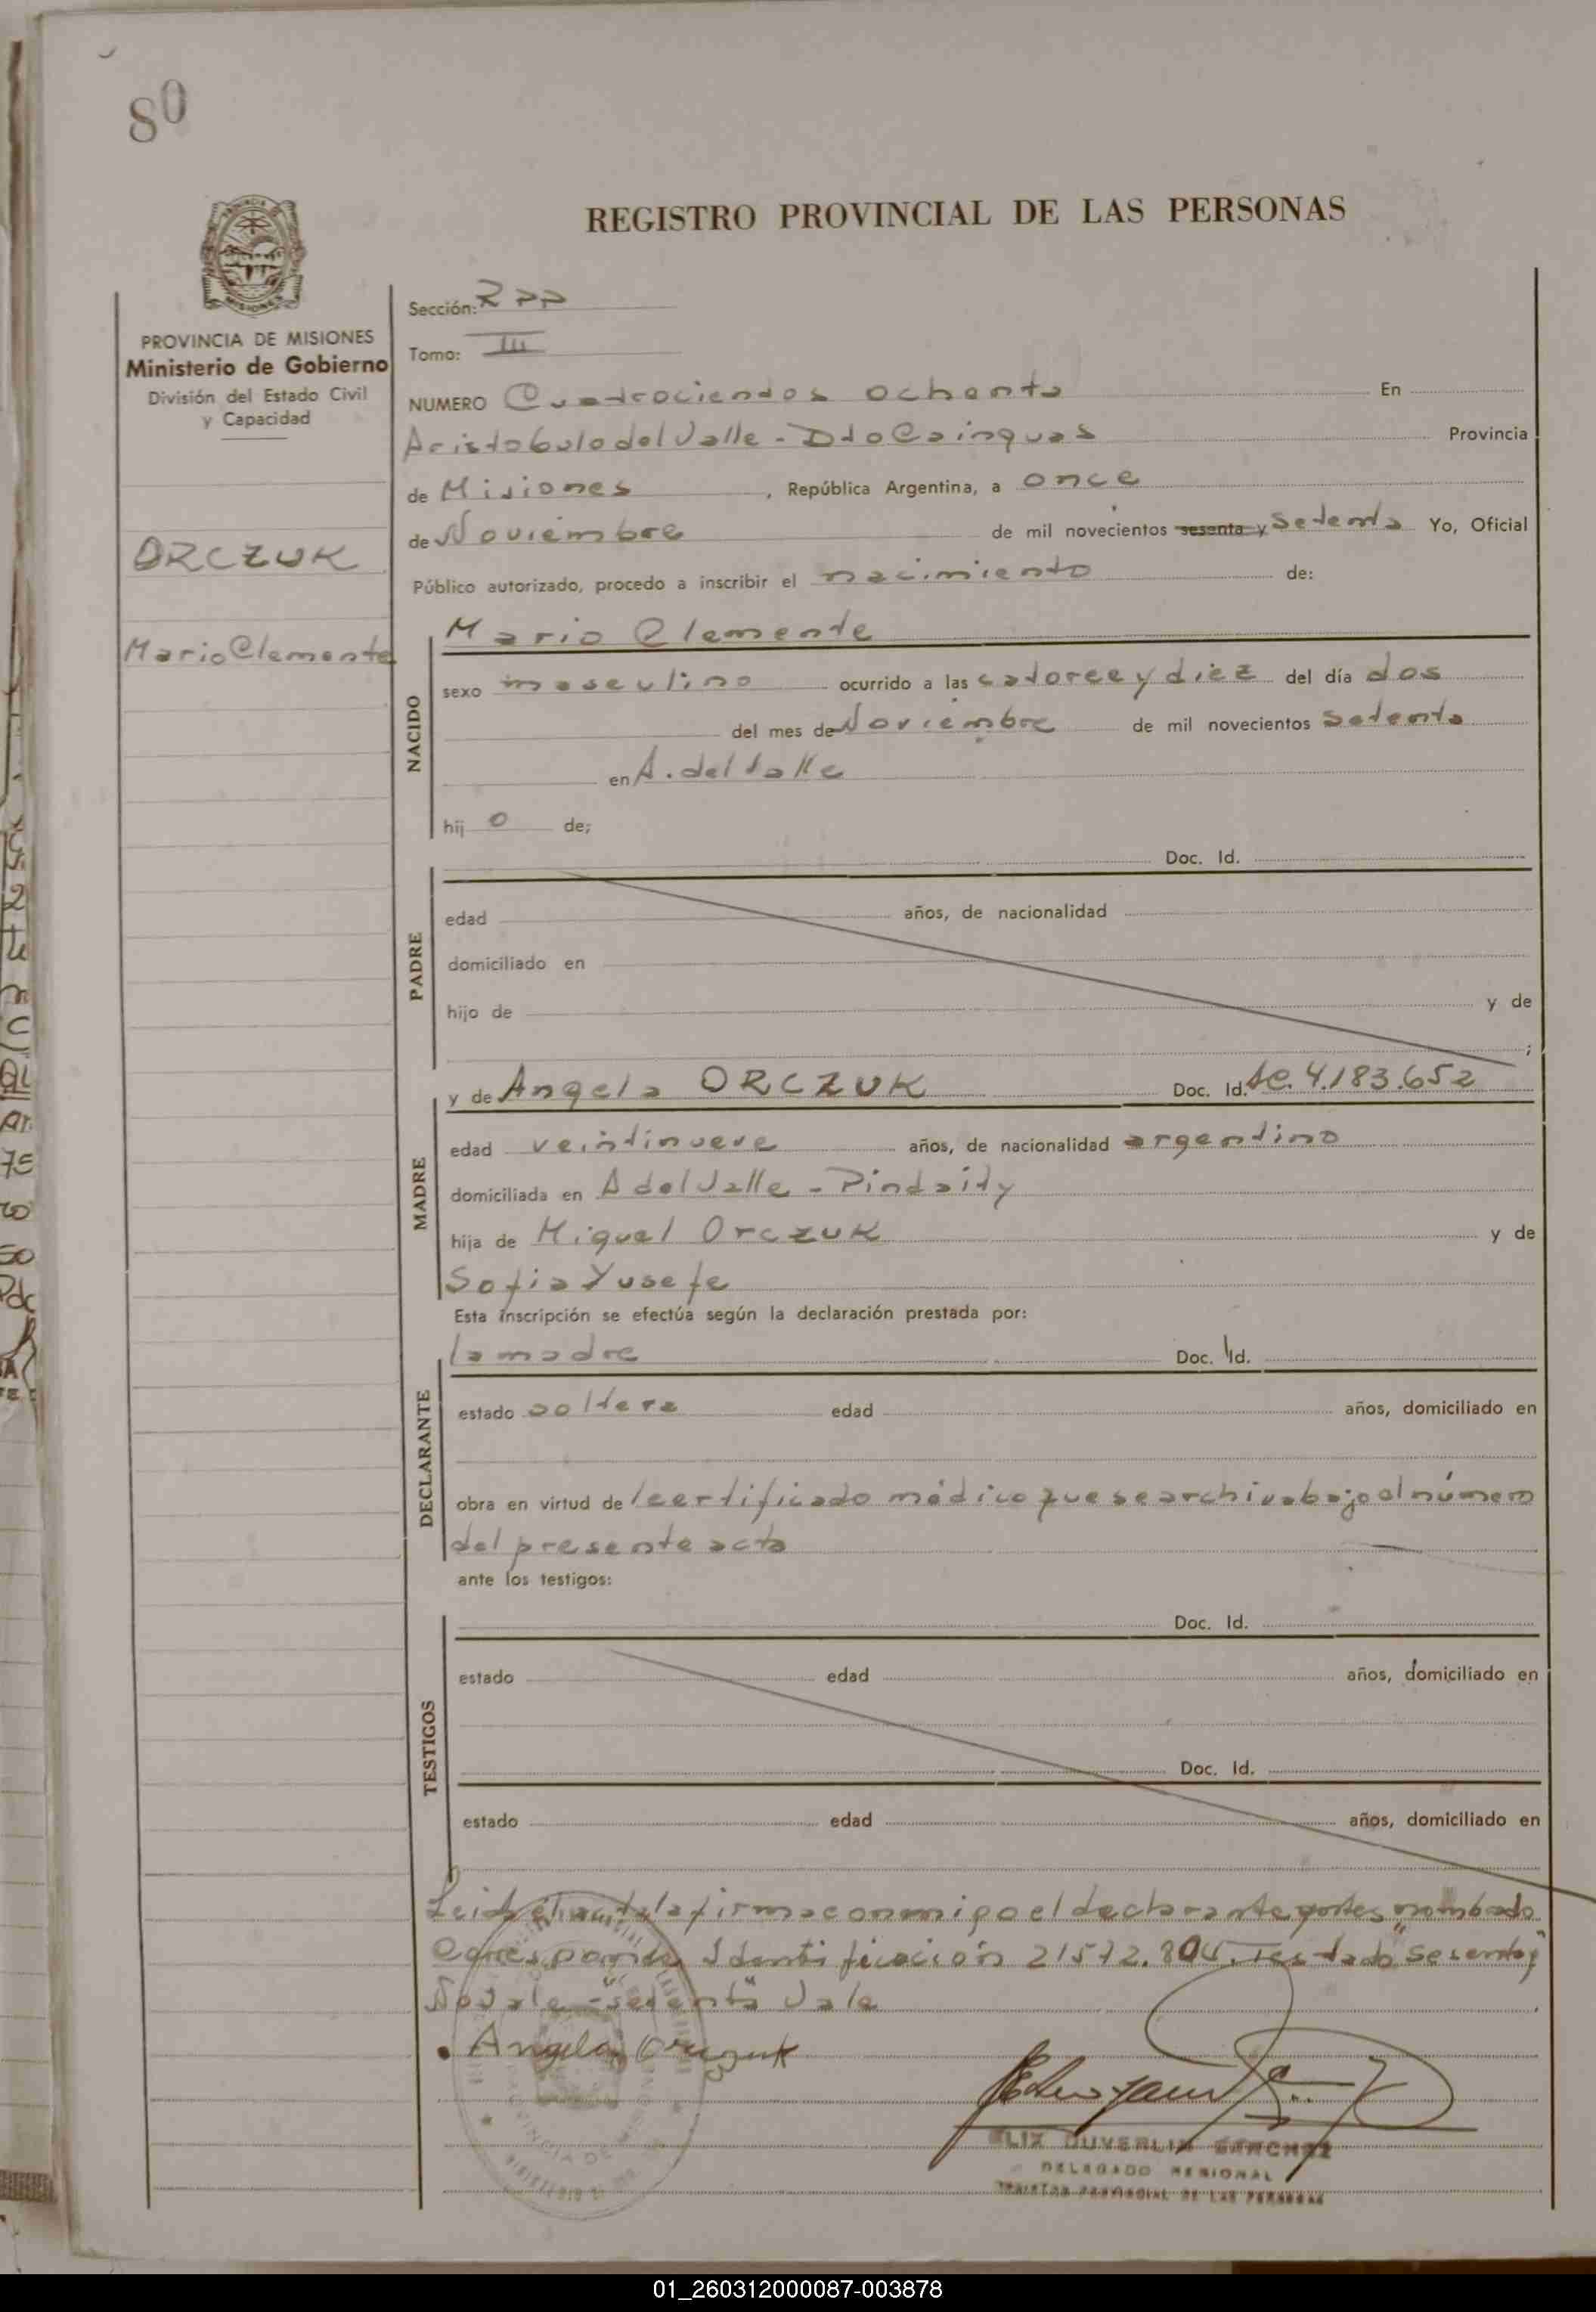 80
REGISTRO PROVINCIAL DE LAS PERSONAS
PROVINCIA DE MISIONES
Ministerio de Gobierno
División del Estado Civil
y Capacidad
ORCZUK
Mario Clemente
Sección: RPP
Tomo: III
NUMERO Cuatrocientos ochenta En
Aristobulo del Valle - Dto Cainguas Provincia
de Misiones, República Argentina, a once
de Noviembre de mil novecientos sesenta y Setenta Yo, Oficial
Público autorizado, procedo a inscribir el nacimiento de:
NACIDO
Mario Clemente
sexo masculino ocurrido a las catorce y diez del día dos
del mes de Noviembre de mil novecientos Setenta
en A. del Valle
hij o de;
PADRE
Doc. Id.
edad años, de nacionalidad
domiciliado en
hijo de y de
;
MADRE
y de Angela ORCZUK Doc. Id. 4.183.652
edad veintinueve años, de nacionalidad argentino
domiciliada en A del Valle - Pindaity
hija de Miguel Orczuk y de
Sofia Yusefe
Esta inscripción se efectúa según la declaración prestada por:
DECLARANTE
la madre Doc. Id.
estado soltera edad años, domiciliado en
obra en virtud de certificado médico que se archiva bajo el número
del presente acta
ante los testigos:
TESTIGOS
Doc. Id.
estado edad años, domiciliado en
Doc. Id.
estado edad años, domiciliado en
Leida el acta la firma conmigo el declarante nombrado
Corresponde Identificación 21572.804. Testado "Sesenta y"
No vale - "setenta" Vale
Angela Orczuk
DUVERLIN SANCHEZ
DELEGADO REGIONAL
REGISTRO PROVINCIAL DE LAS PERSONAS
01_260312000087-003878